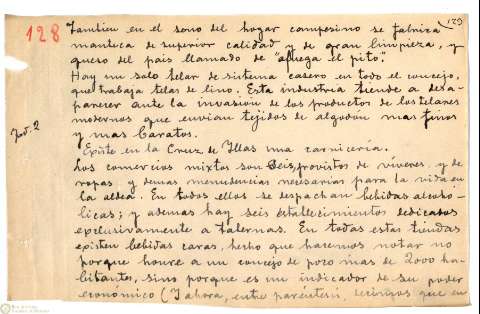 128
129
Tambien en el seno del hogar campesino se fabriza
manteca de superior calidad y de gran limpieza, y
queso del pais llamado de "afuega el pito".
Hay un solo telar de sistema casero en todo el concejo,
que trabaja telas de lino. Esta industria tiende a desa-
parecer ante la invasión de los productos de los telares
modernos que envian tejidos de algodón mas finos
y mas baratos.
Existe en la Cruz de Illas una carnicería.
Los comercios mixtos son seis, provistos de víveres y de
ropas y demas menudencias necesarias para la vida en
la aldea. En todos ellos se despachan bebidas alcohó-
licas; y ademas hay seis establecimientos dedicados
exclusivamente a tabernas. En todas estas tiendas
existen bebidas caras, hecho que hacemos notar no
porque honre a un concejo de poco mas de 2000 ha-
bitantes, sino porque es un indicador de su poder
económico (Y ahora, entre paréntesis, decimos que en